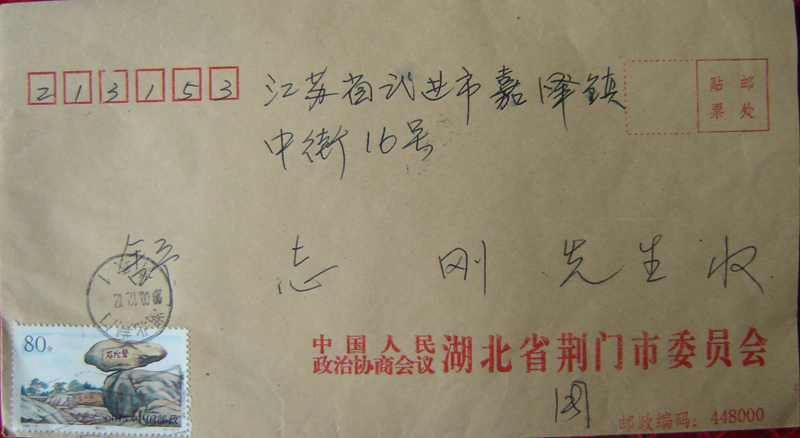 213153
江苏省武进市嘉泽镇
中街16号
邮
贴
处
票
志 刚 先生 收
80分
中国邮政
中国人民
政治协商会议 湖北省荆门市委员会
邮政编码：448000